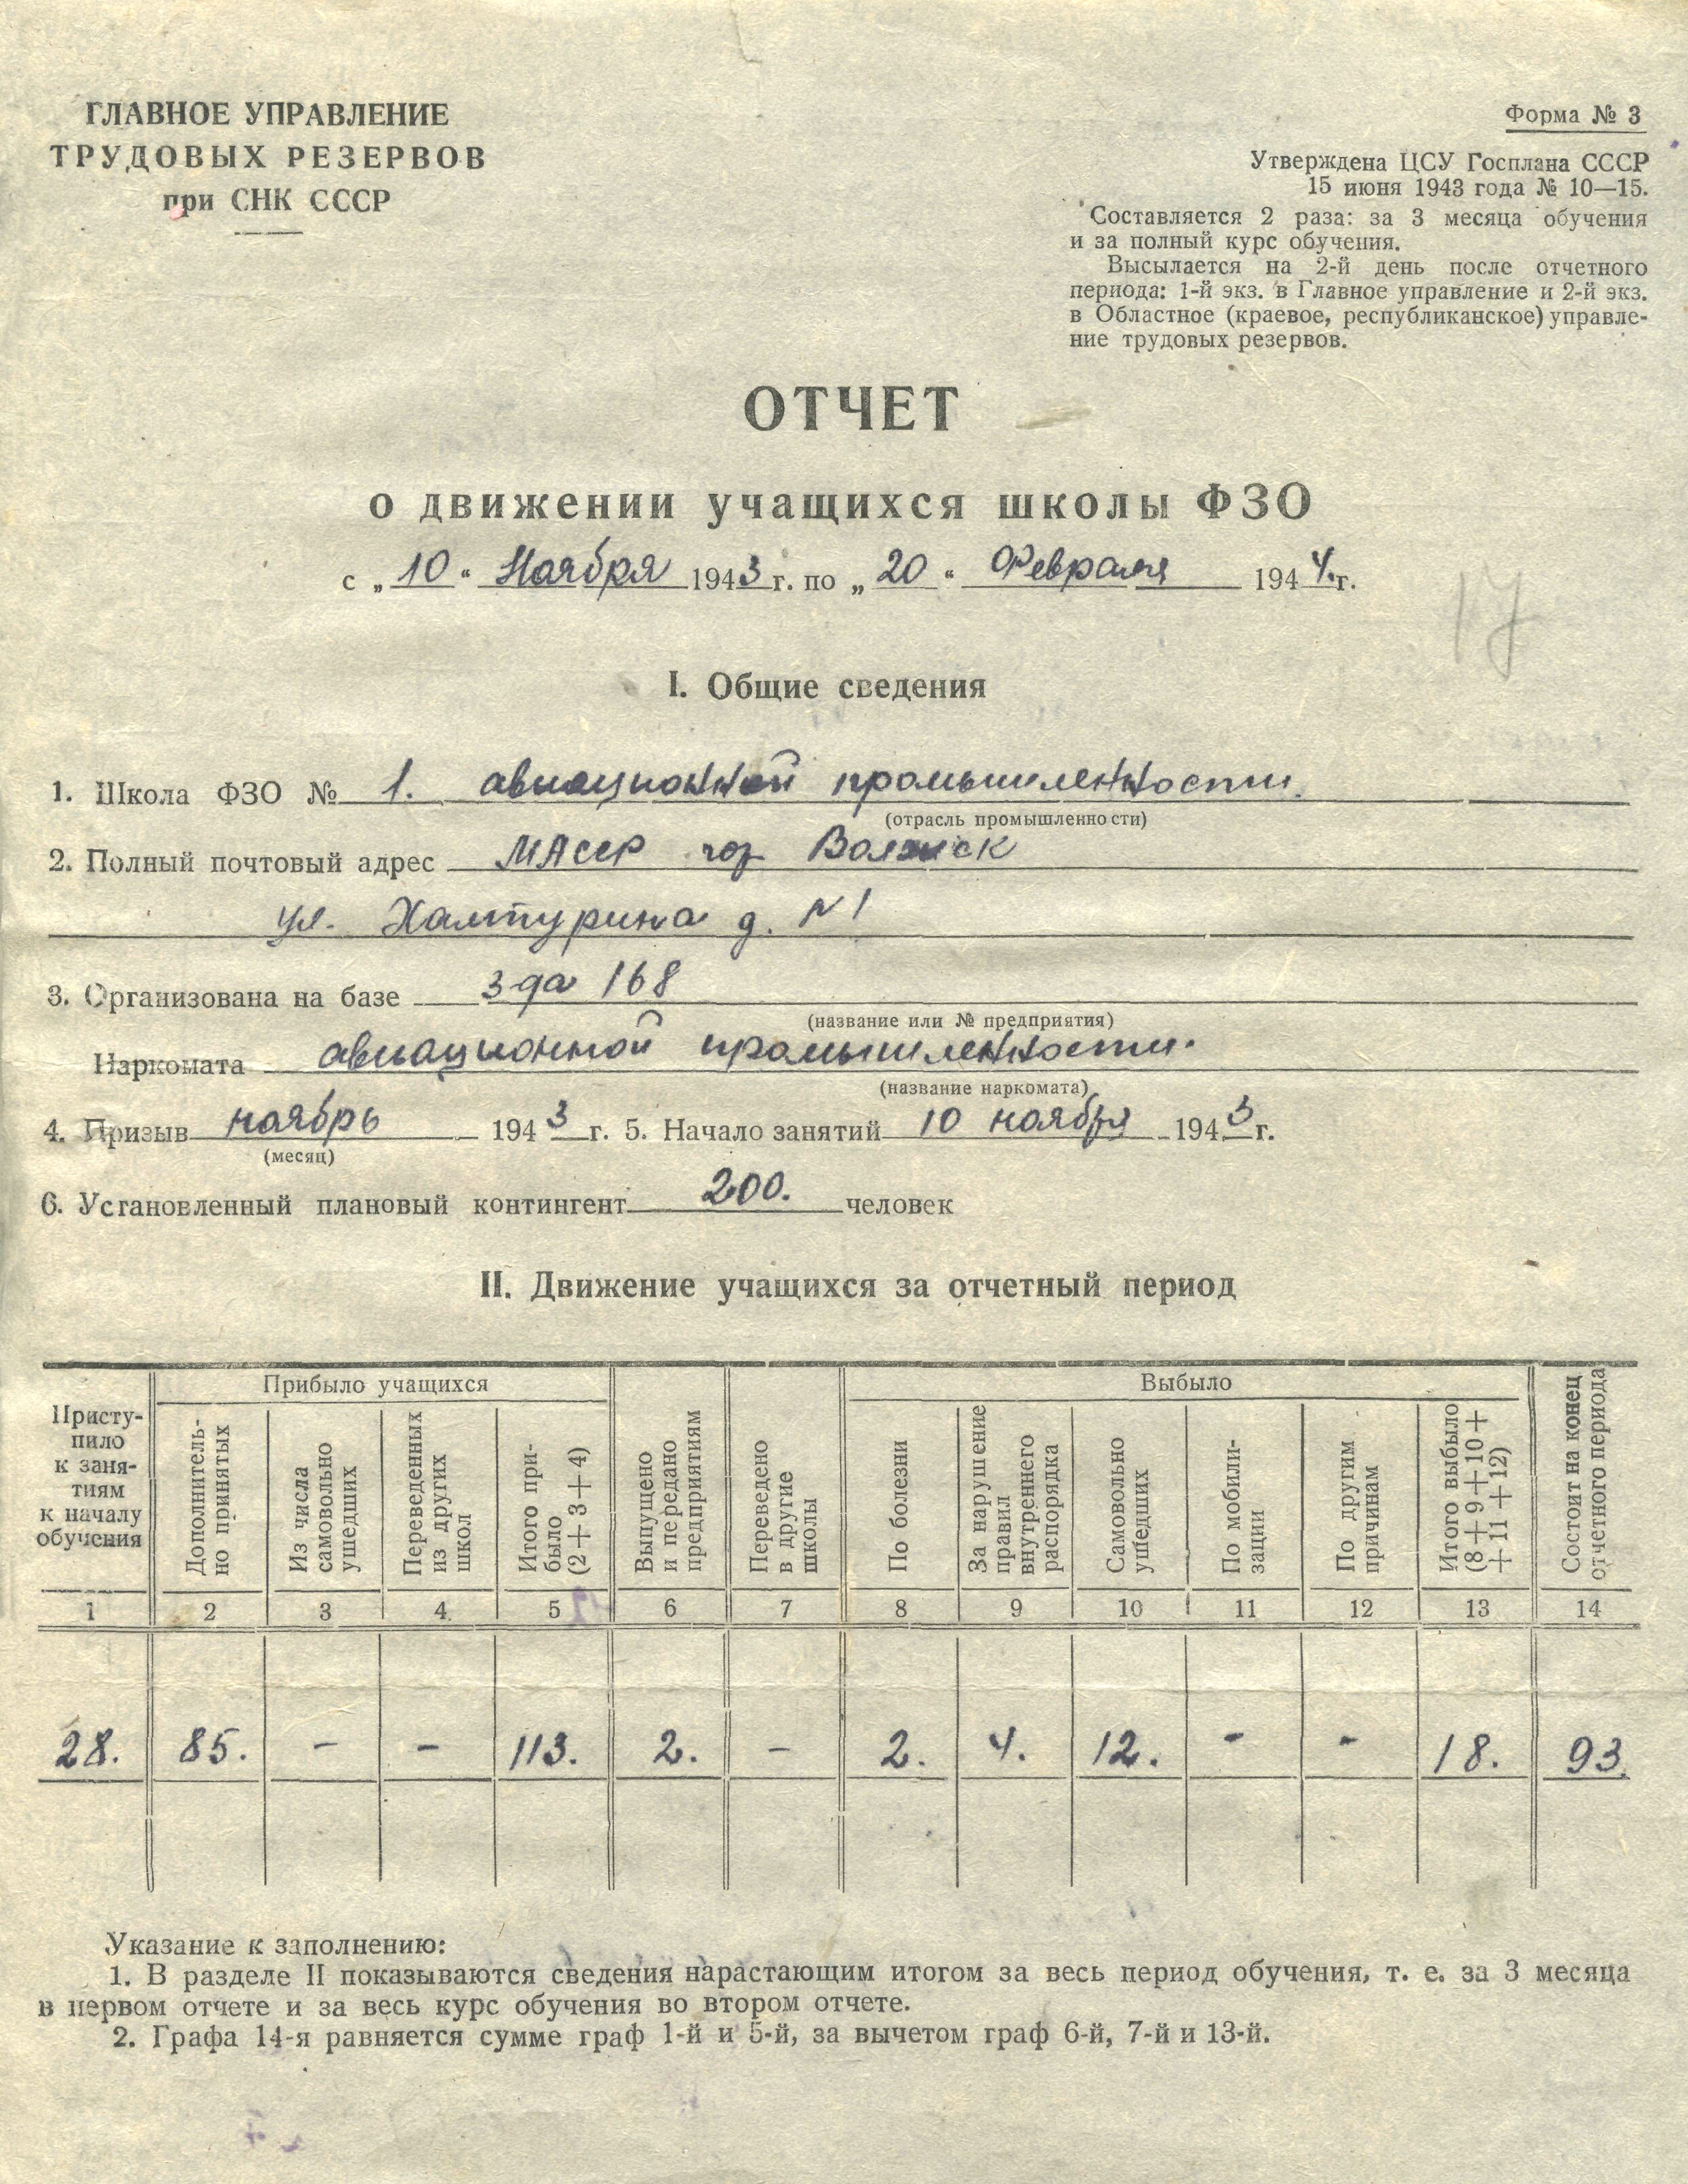 ГЛАВНОЕ УПРАВЛЕНИЕ
ТРУДОВЫХ РЕЗЕРВОВ
при СНК СССР
Форма № 3
Утверждена ЦСУ Госплана СССР
15 июня 1943 года № 10—15.
Составляется 2 раза: за 3 месяца обучения
и за полный курс обучения.
Высылается на 2-й день после отчетного
периода: 1-й экз. в Главное управление и 2-й экз.
в Областное (краевое, республиканское) управле-
ние трудовых резервов.
ОТЧЕТ
о движении учащихся школы ФЗО
с „10“ Ноября 1943 г. по „20“ Февраля 1944. г.
17
I. Общие сведения
1. Школа ФЗО № 1. авиационной промышленности.
(отрасль промышленности)
2. Полный почтовый адрес МАССР гор Волжск
ул. Халтурина д. N 1
3. Организована на базе з-да 168
(название или № предприятия)
Наркомата авиационной промышленности.
(название наркомата)
4. Призыв ноябрь 1943 г. 5. Начало занятий 10 ноября 1943 г.
(месяц)
6. Установленный плановый контингент 200. человек
II. Движение учащихся за отчетный период
Присту-
пило
к заня-
тиям
к началу
обучения
Прибыло учащихся
Дополнитель-
но принятых
Из числа
самовольно
ушедших
Переведенных
из других
школ
Итого при-
было
(2+3+4)
Выпущено
и передано
предприятиям
Переведено
в другие
школы
Выбыло
По болезни
За нарушение
правил
внутреннего
распорядка
Самовольно
ушедших
По мобили-
зации
По другим
причинам
Итого выбыло
(8+9+10+
+11+12)
Состоит на конец
отчетного периода
1 2 3 4 5 6 7 8 9 10 11 12 13 14
28. 85. - - 113. 2. - 2. 4. 12. - - 18. 93.
Указание к заполнению:
1. В разделе II показываются сведения нарастающим итогом за весь период обучения, т. е. за 3 месяца
в первом отчете и за весь курс обучения во втором отчете.
2. Графа 14-я равняется сумме граф 1-й и 5-й, за вычетом граф 6-й, 7-й и 13-й.